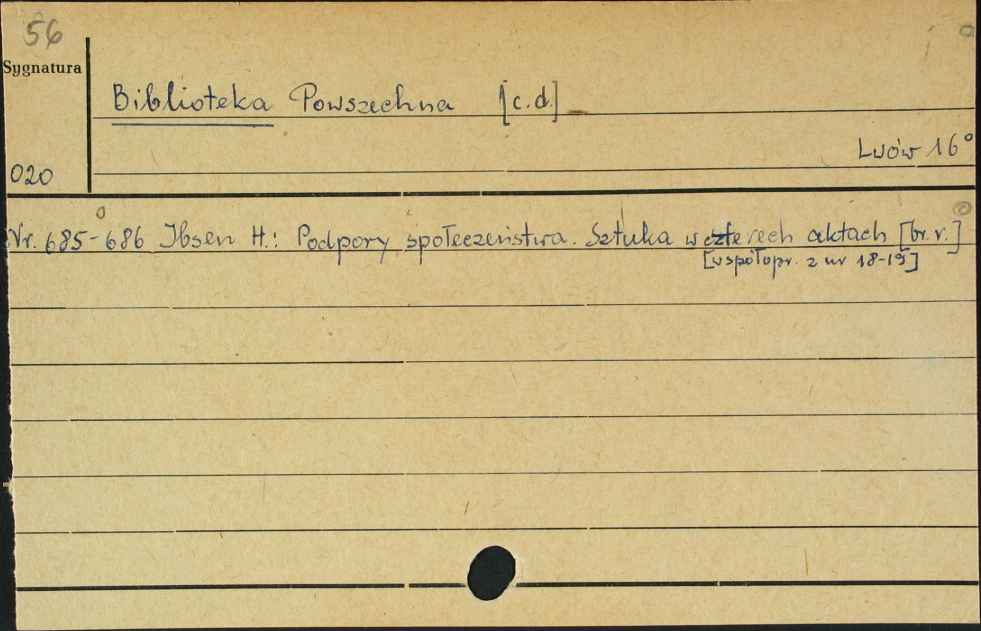 56
Sygnatura
Biblioteka Powszechna [c.d.]
Lwów 16°
020
Nr. 685-686 Ibsen H.: Podpory społeczeństwa. Sztuka w czterech aktach [br. r.]
[współopr. z nr 18-19]